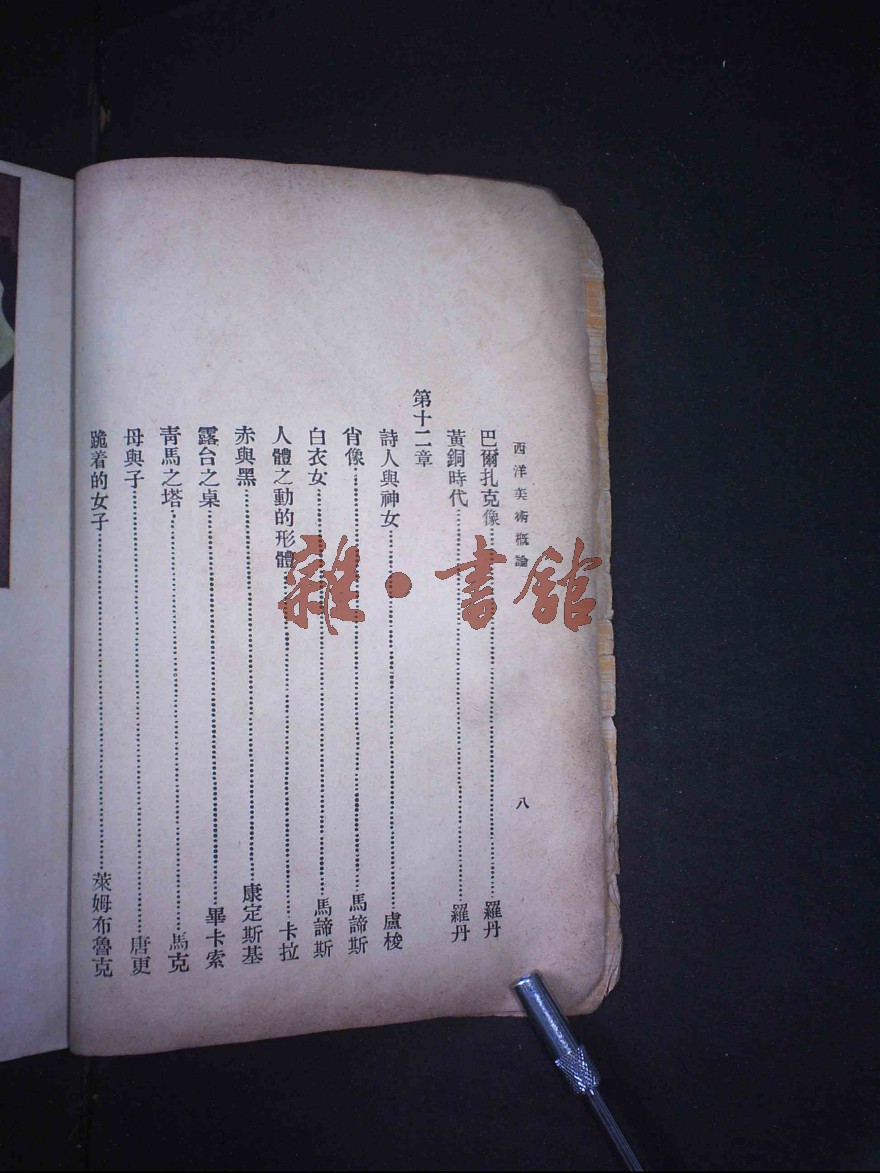 西洋美術概論
八
巴爾扎克像…………羅丹
黃銅時代…………羅丹
第十二章
詩人與神女…………盧梭
肖像…………馬諦斯
白衣女…………馬諦斯
人體之動的形體…………卡拉
赤與黑…………康定斯基
露台之桌…………畢卡索
青馬之塔…………馬克
母與子…………唐更
跪着的女子…………萊姆布魯克
雜·書館